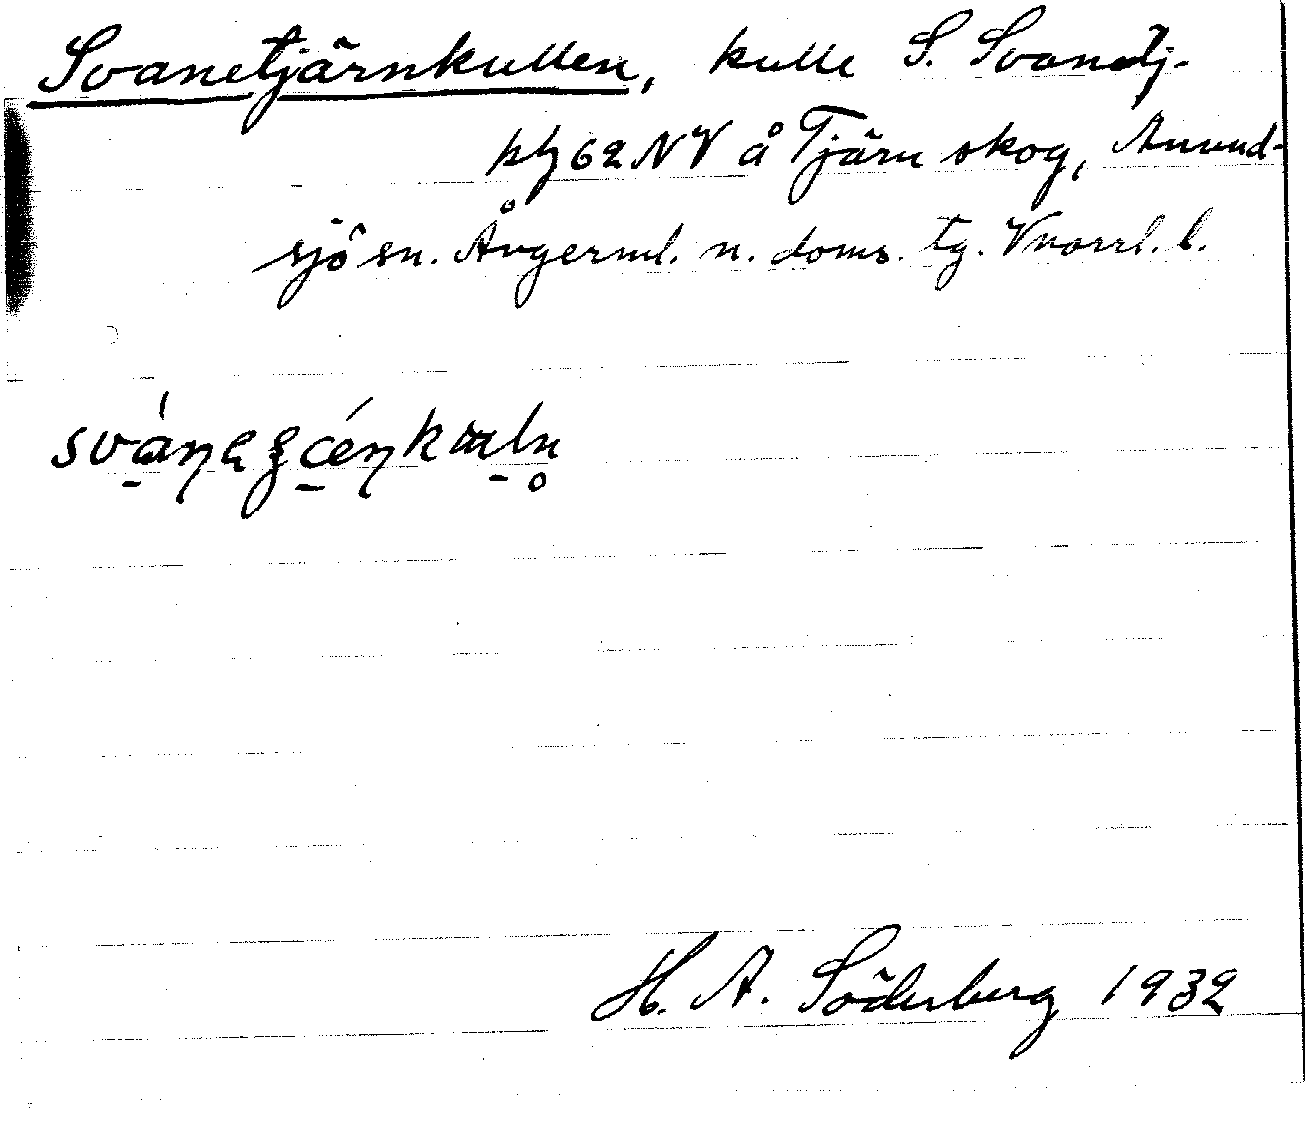 Svanetjärnkullen, kulle S. Svanetj.
på 62 NV å Tjärn skog, Anund-
sjö sn. Ångerml. n. doms. tg. Vnorrl. l.
H. A. Söderberg 1932